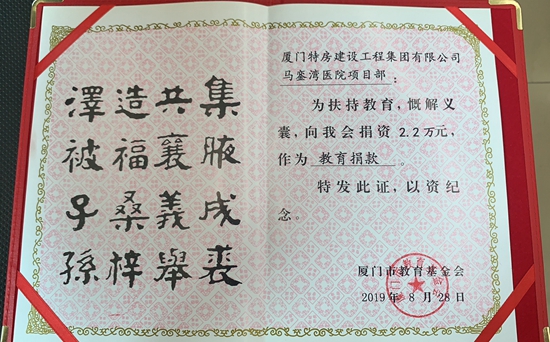 集腋成裘
共襄義舉
造福桑梓
澤被子孫
厦门特房建设工程集团有限公司
马銮湾医院项目部：
为扶持教育，慨解义
囊，向我会捐资 2.2 万元，
作为 教育捐款 。
特发此证，以资纪
念。
厦门市教育基金会
2019 年 8 月 28 日
厦门市教育基金会